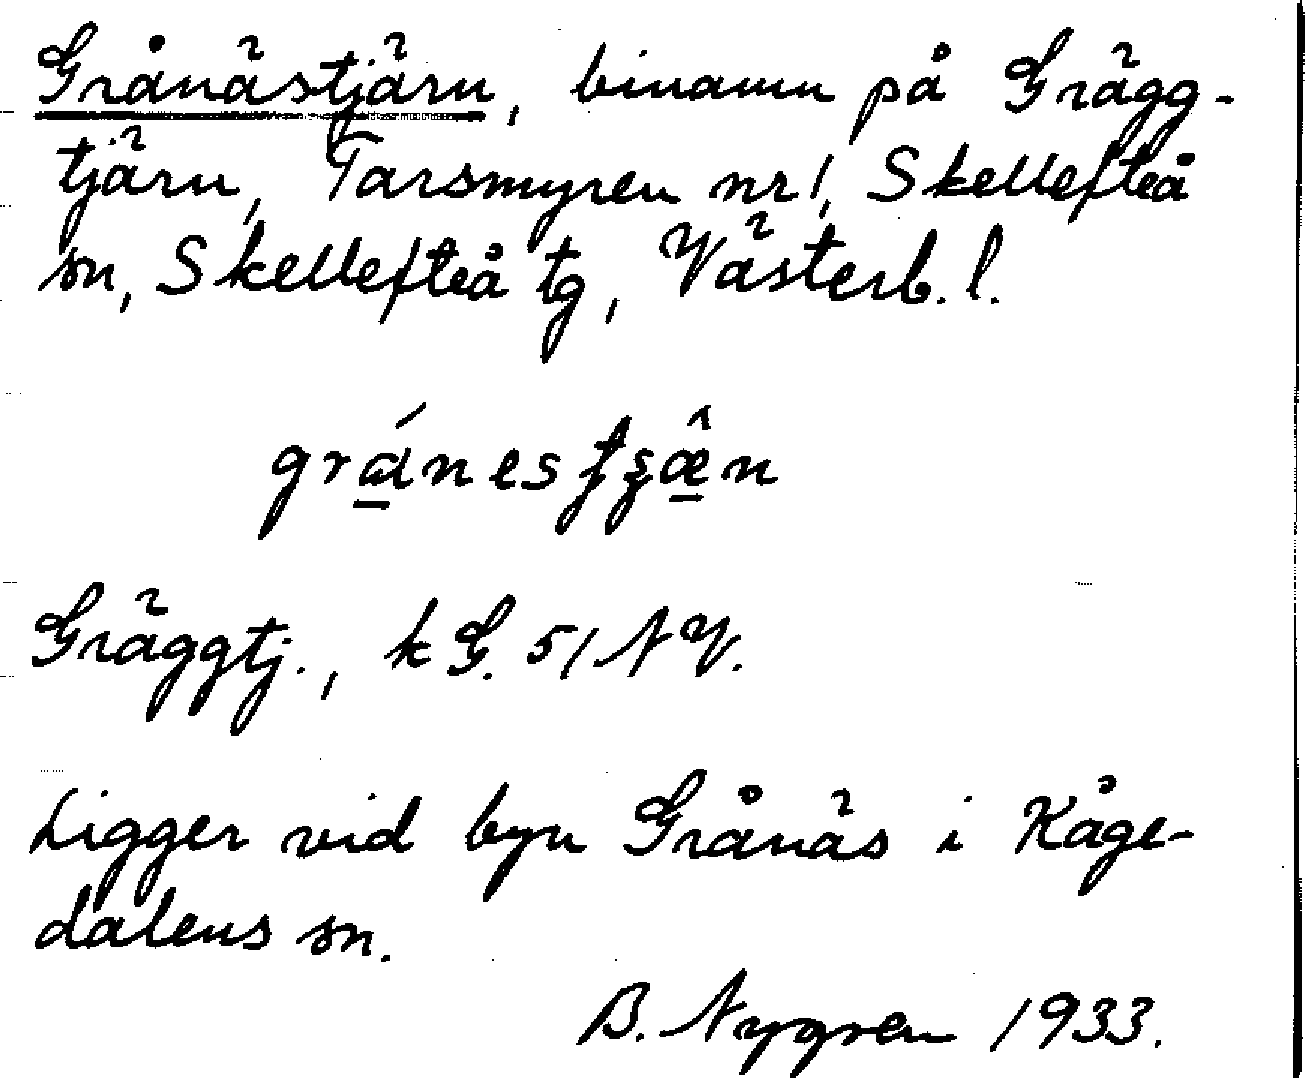 Grånästjärn, binamn på Grägg-
tjärn, Tarsmyren nr 1, Skellefteå
sn, Skellefteå tg, Västerb. l.
gránestʂæ̂n
Gräggtj., k G. 51 NV.
Ligger vid byn Grånäs i Kåge-
dalens sn.
B. Nygren 1933.